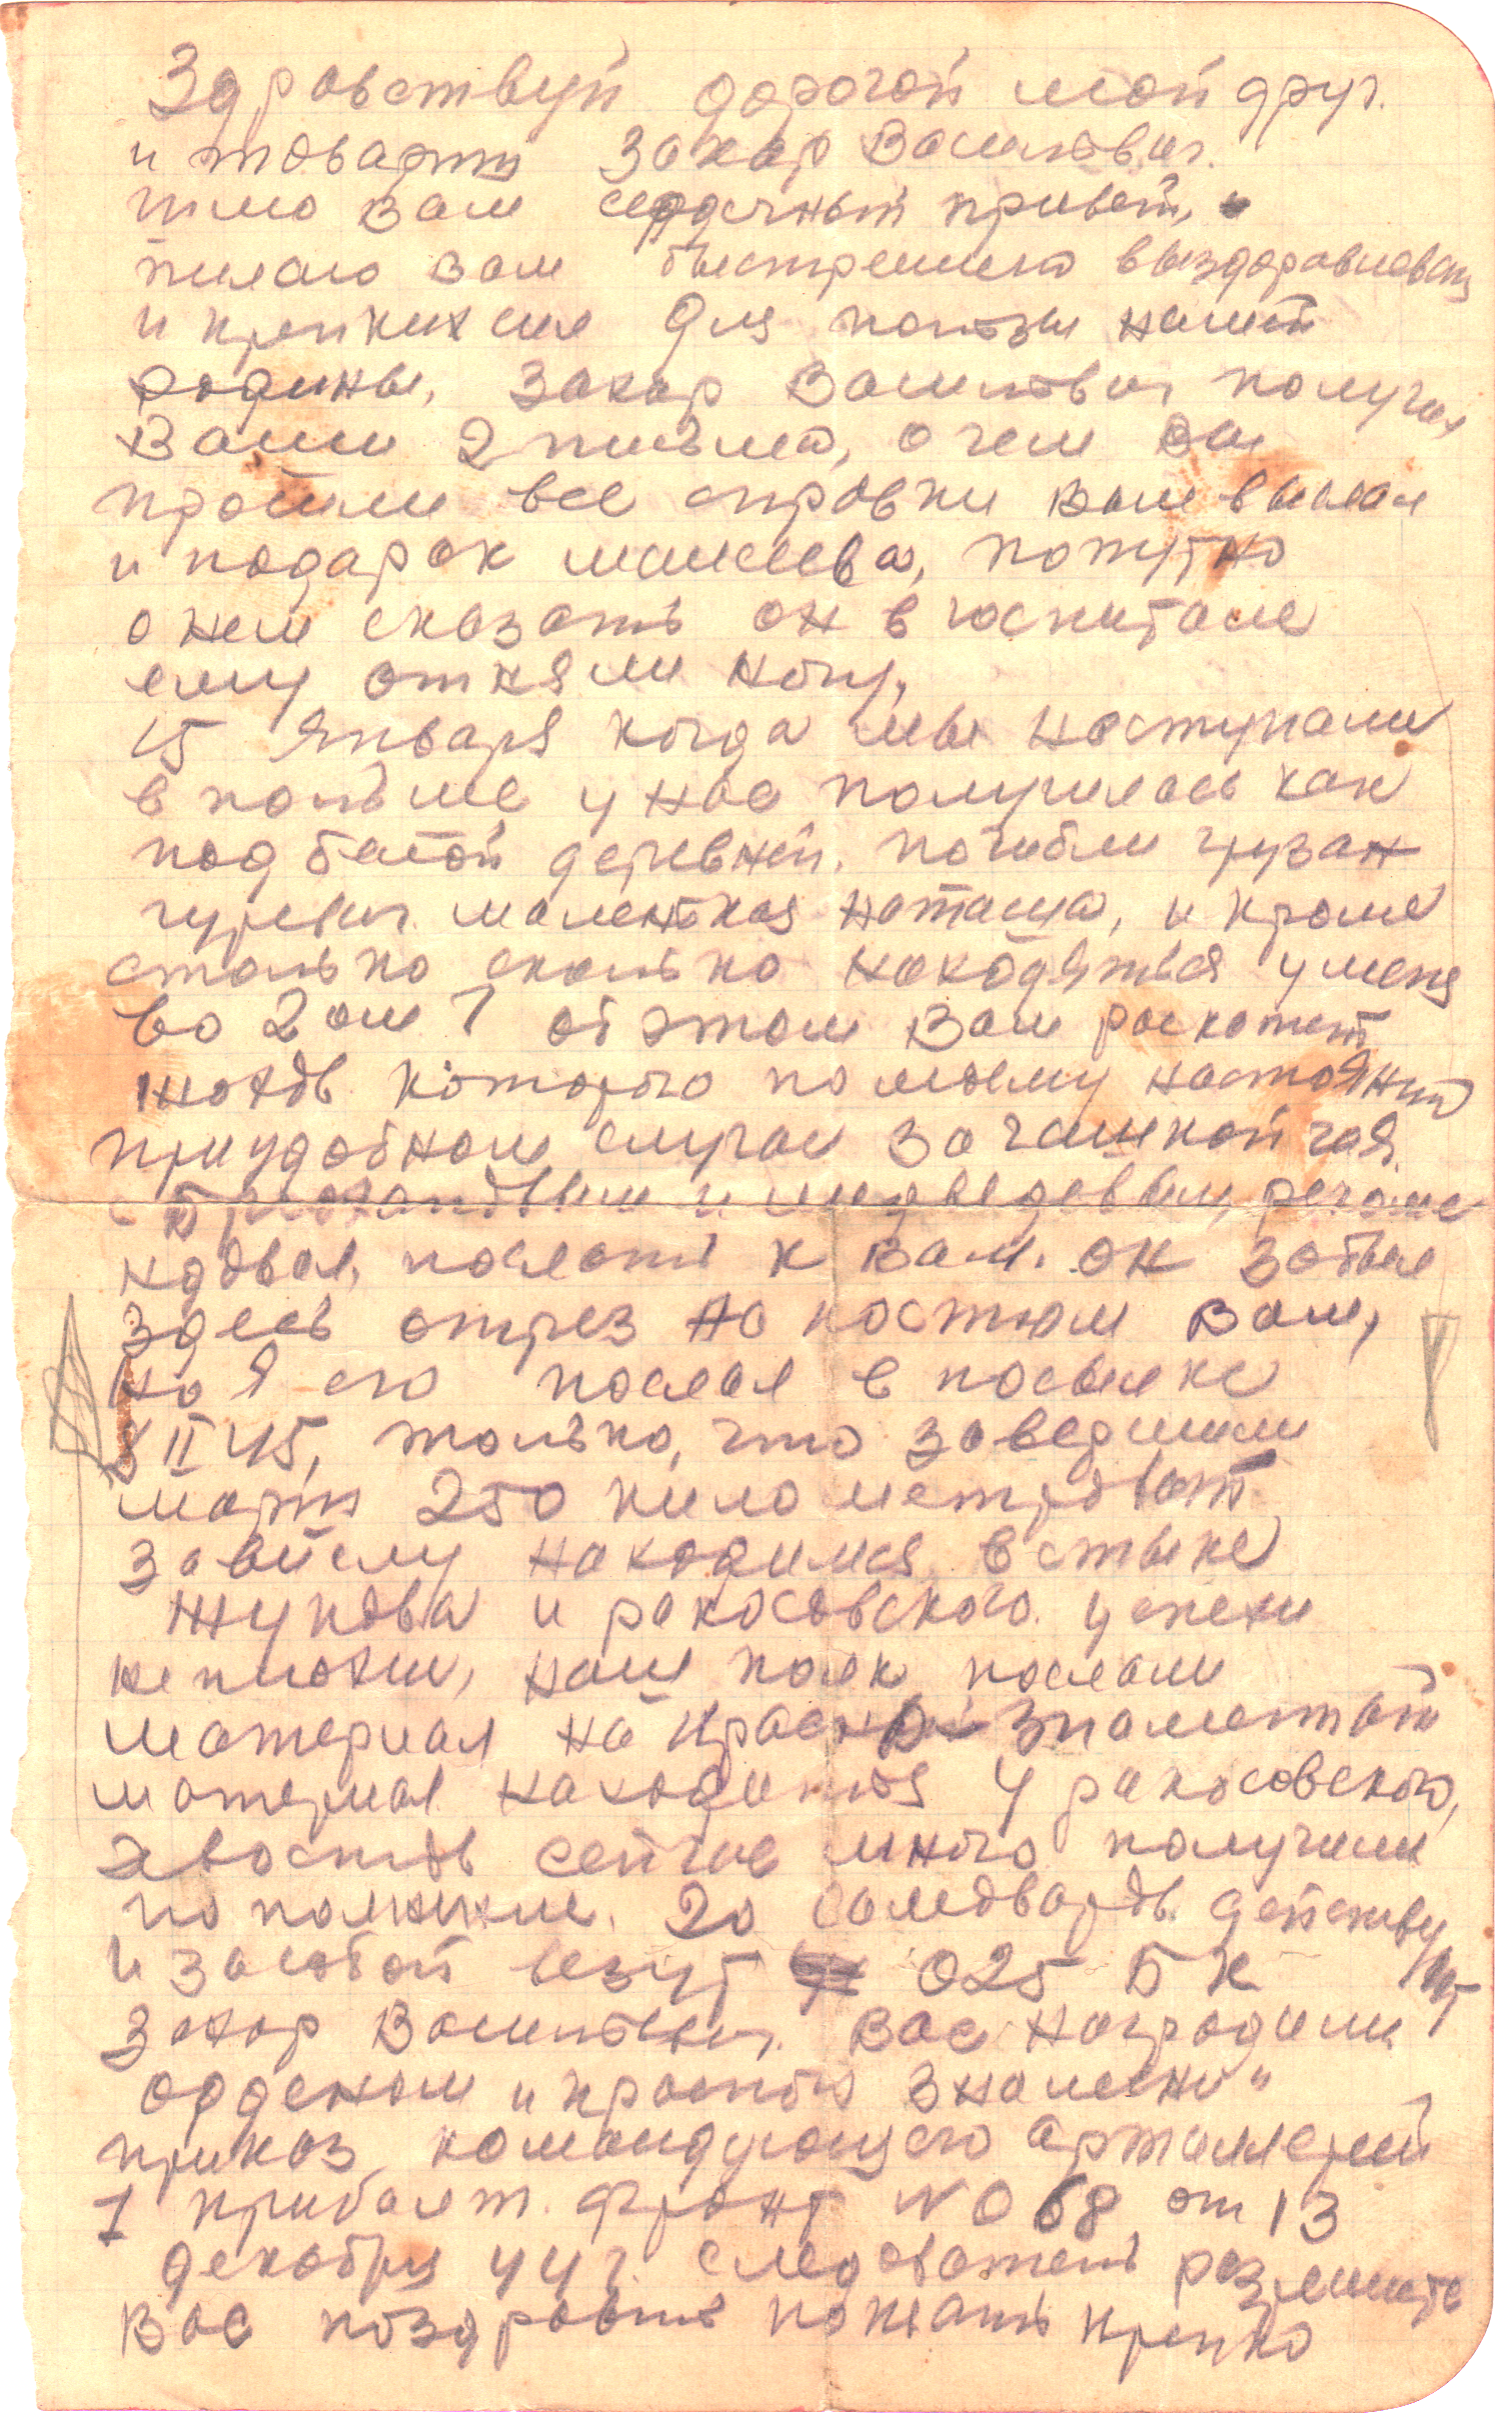 Здравствуй дорогой мой друг.
и товарищ Захар Васильевич.
шлю Вам сердечный привет, и
желаю Вам быстрейшего выздоравлевания
и крепких сил для пользы нашей
родины, Захар Васильевич получил
Ваши 2 письма, о чем Вы
просили все справки Вам выслал
и подарок попутно
о нем сказать он в госпитале
ему отняли ногу,
15 Января когда мы наступали
в польше у нас получилось как
под белой деревней. погибли грузан
гуревич маленькая наташа, и кроме
столько сколько находяться у меня
во 2 ом 1 об этом Вам раскажет
жохов которого по моему настоянию
при удобном случае за чашкой чая.
с и медведевым, рекоме
ндовал, послать к Вам. он забыл
здесь отрез на костюм Вам,
но я его послал в посылке
8 II 45, только, что завершили
марш 250 километровый
за вислу находимся, в стыке
жукова и рокосовского. успехи
не плохие, наш полк послали
материал на Краснознаменный
материал находиться у рокосовского,
хвостов сейчас много получили
пополнили. 20 самоваров действу
ют
и за собой везут 0 25 Б К
Захар Васильевич. Вас наградили
орденом "красное знамени"
приказ командующего артиллерией
1 прибалт. фронт № 068 от 13
декабря 44 г. следователь разрешите
Вас поздравить пожать крепко